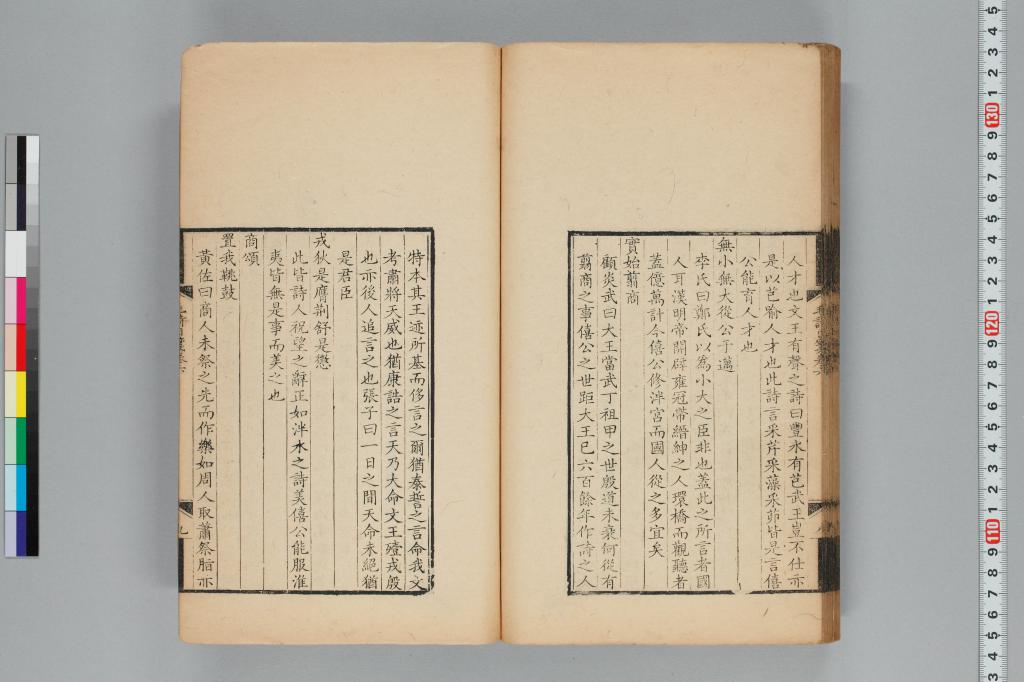 人才也文王有聲之詩曰豐水有芑武王豈不仕亦
是以芑喻人才也此詩言采芹采藻采茆皆是言僖
公能育人才也
無小無大從公于邁
李氏曰鄭氏以為小大之臣非也蓋此之所言者國
人耳漢明帝開辟雍冠帶縉紳之人環橋而觀聽者
蓋億萬計今僖公修泮宮而國人從之多宜矣
實始翦商
顧炎武曰大王當武丁祖甲之世殷道未衰何從有
翦商之事僖公之世距大王已六百餘年作詩之人
特本其王迹所基而侈言之爾猶泰誓之言命我文
考肅將天威也猶康誥之言天乃大命文王殪戎殷
也亦後人追言之也張子曰一日之間天命未絕猶
是君臣
戎狄是膺荊舒是懲
此皆詩人祝望之辭正如泮水之詩美僖公能服淮
夷皆無是事而美之也
商頌
置我鞉鼓
黃佐曰商人未祭之先而作樂如周人取蕭祭脂亦
九
130
120
110